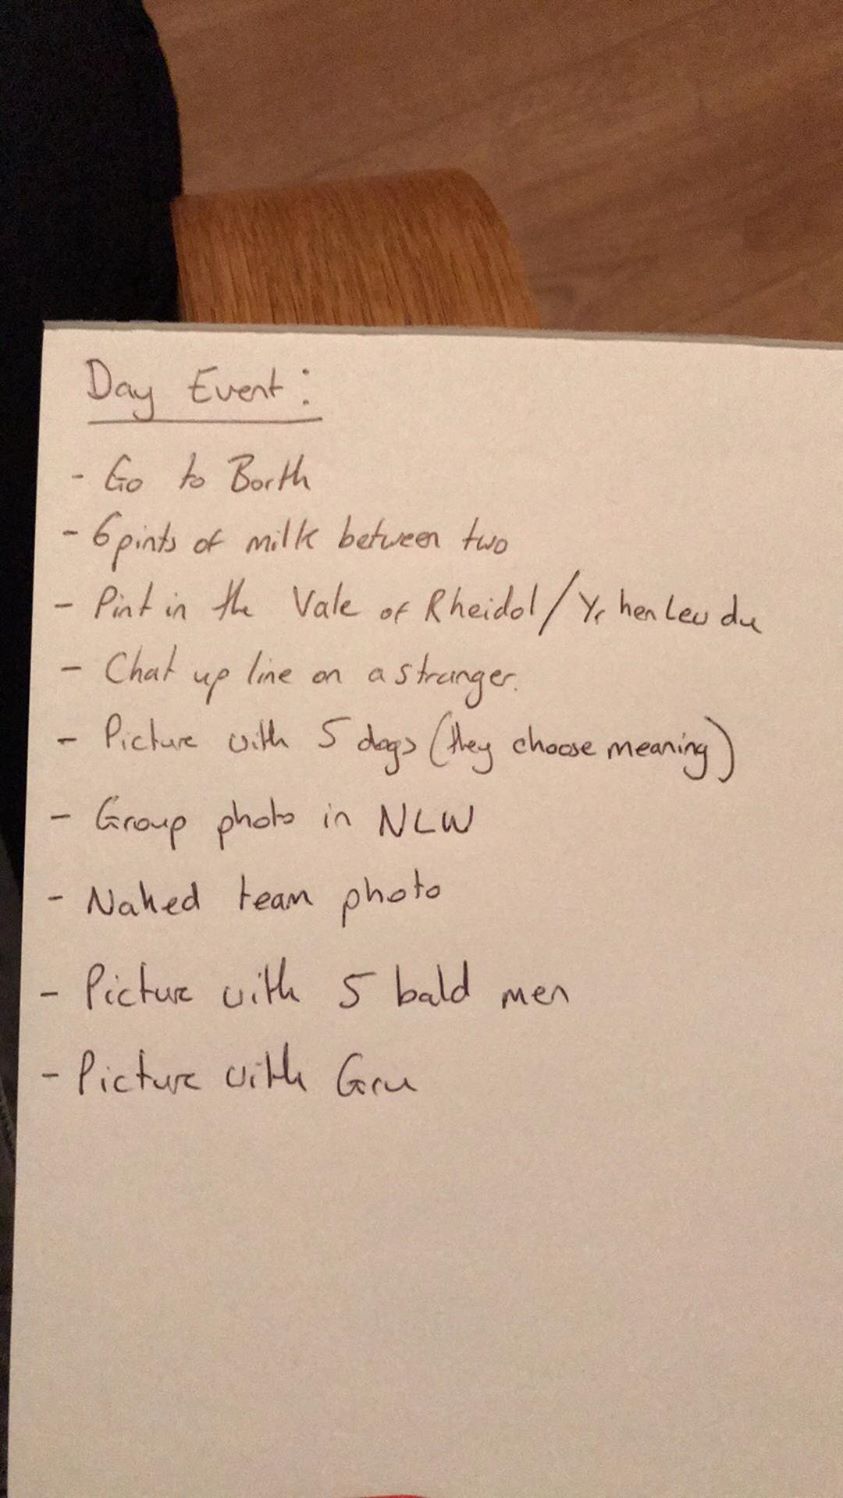 Day Event:
- Go to Borth
- 6 pints of milk between two
- Pint in the Vale of Rheidol/Yr hen Lew du
- Chat up line on a stranger.
- Picture with 5 dogs (they choose meaning)
- Group photo in NLW
- Naked team photo
- Picture with 5 bald men
- Picture with Gru